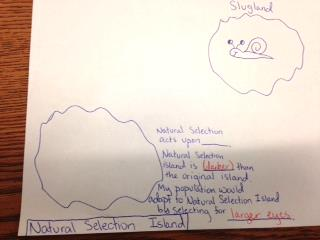 Slugland
Natural Selection
acts upon
Natural Selection
island is (darker) than
the original island
My population would
adapt to Natural Selection Island
by selecting for larger eyes.
Natural Selection Island